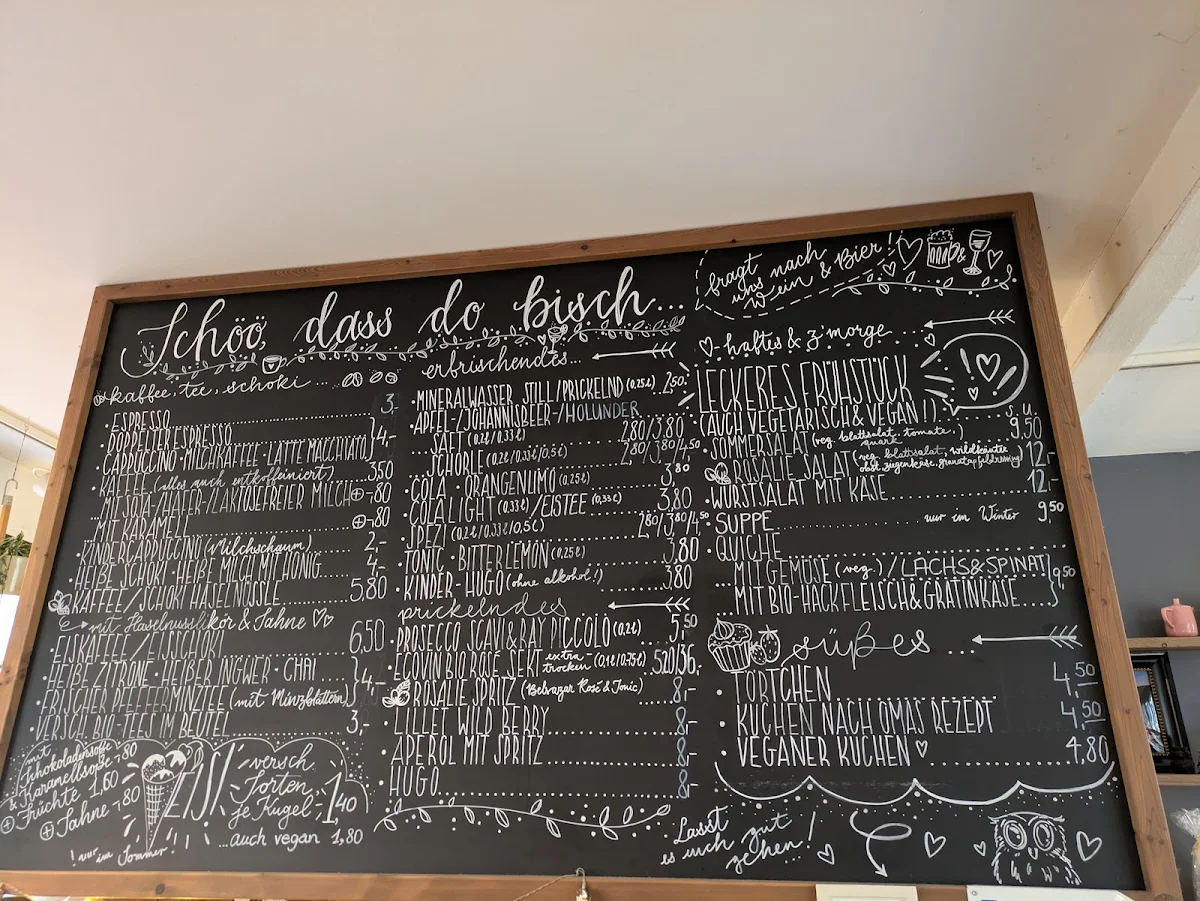 Schöö, dass do bisch...
kaffee, tee, schoki ...
· ESPRESSO 3,-
· DOPPELTER ESPRESSO
· CAPPUCCINO · MILCHKAFFEE · LATTE MACCHIATO } 4,-
· KAFFEE (alles auch entkoffeiniert) 3,50
... MIT SOJA-/HAFER-/LAKTOSEFREIER MILCH ⊕ -80
... MIT KARAMELL ⊕ -80
· KINDERCAPPUCCINO (Milchschaum) 2,-
· HEIẞE SCHOKI · HEIẞE MILCH MIT HONIG 4,-
KAFFEE/SCHOKI HASELNÜSSLE 5,80
mit Haselnusslikör & Sahne ♡♡
· EISKAFFEE/EISSCHOKI 6,50
· HEIẞE ZITRONE · HEIẞER INGWER · CHAI
· FRISCHER PFEFFERMINZTEE (mit Minzblättern) } 4,-
· VERSCH. BIO-TEES IM BEUTEL 3,-
mit Schokoladensoße
& Karamellsoße -80
⊕ Früchte 1,60
⊕ Sahne -80
! nur im Sommer !
EIS!
versch.
Sorten
je Kugel 1,40
... auch vegan 1,80
erfrischendes...
· MINERALWASSER STILL/PRICKELND (0,25l) 2,50
· APFEL-/JOHANNISBEER-/HOLUNDER
SAFT (0,2l/0,33l) 2,80/3,80
SCHORLE (0,2l/0,33l/0,5l) 2,80/3,80/4,50
· COLA · ORANGENLIMO (0,25l) 3,80
· COLA LIGHT (0,33l)/EISTEE (0,33l) 3,80
· SPEZI (0,2l/0,33l/0,5l) 2,80/3,80/4,50
· TONIC · BITTER LEMON (0,25l) 3,80
· KINDER-HUGO (ohne alkohol!) 3,80
prickelndes
· PROSECCO SCAVI & RAY PICCOLO (0,2l) 5,50
ECOVIN BIO ROSÉ SEKT extra trocken (0,1l/0,75l) 5,20/36,-
ROSALIE SPRITZ (Belsazar Rosé & Tonic) 8,-
LILLET WILD BERRY 8,-
APEROL MIT SPRITZ 8,-
HUGO 8,-
fragt nach
uns Wein & Bier!
♡-haftes & z'morge
LECKERES FRÜHSTÜCK
(AUCH VEGETARISCH & VEGAN!)
· SOMMERSALAT (veg. blattsalat, tomate, quark) 9,50
ROSALIE SALAT (veg. blattsalat, wildkräuter, obst, ziegenkäse, granatapfeldressing) 12,-
· WURSTSALAT MIT KÄSE 12,-
· SUPPE nur im Winter 9,50
· QUICHE
... MIT GEMÜSE (veg.)/LACHS & SPINAT
... MIT BIO-HACKFLEISCH & GRATINKÄSE } 9,50
süßes ...
· TÖRTCHEN 4,50
· KUCHEN NACH OMAS REZEPT 4,50
· VEGANER KUCHEN ♡ 4,80
Lasst
es euch gut
gehen!